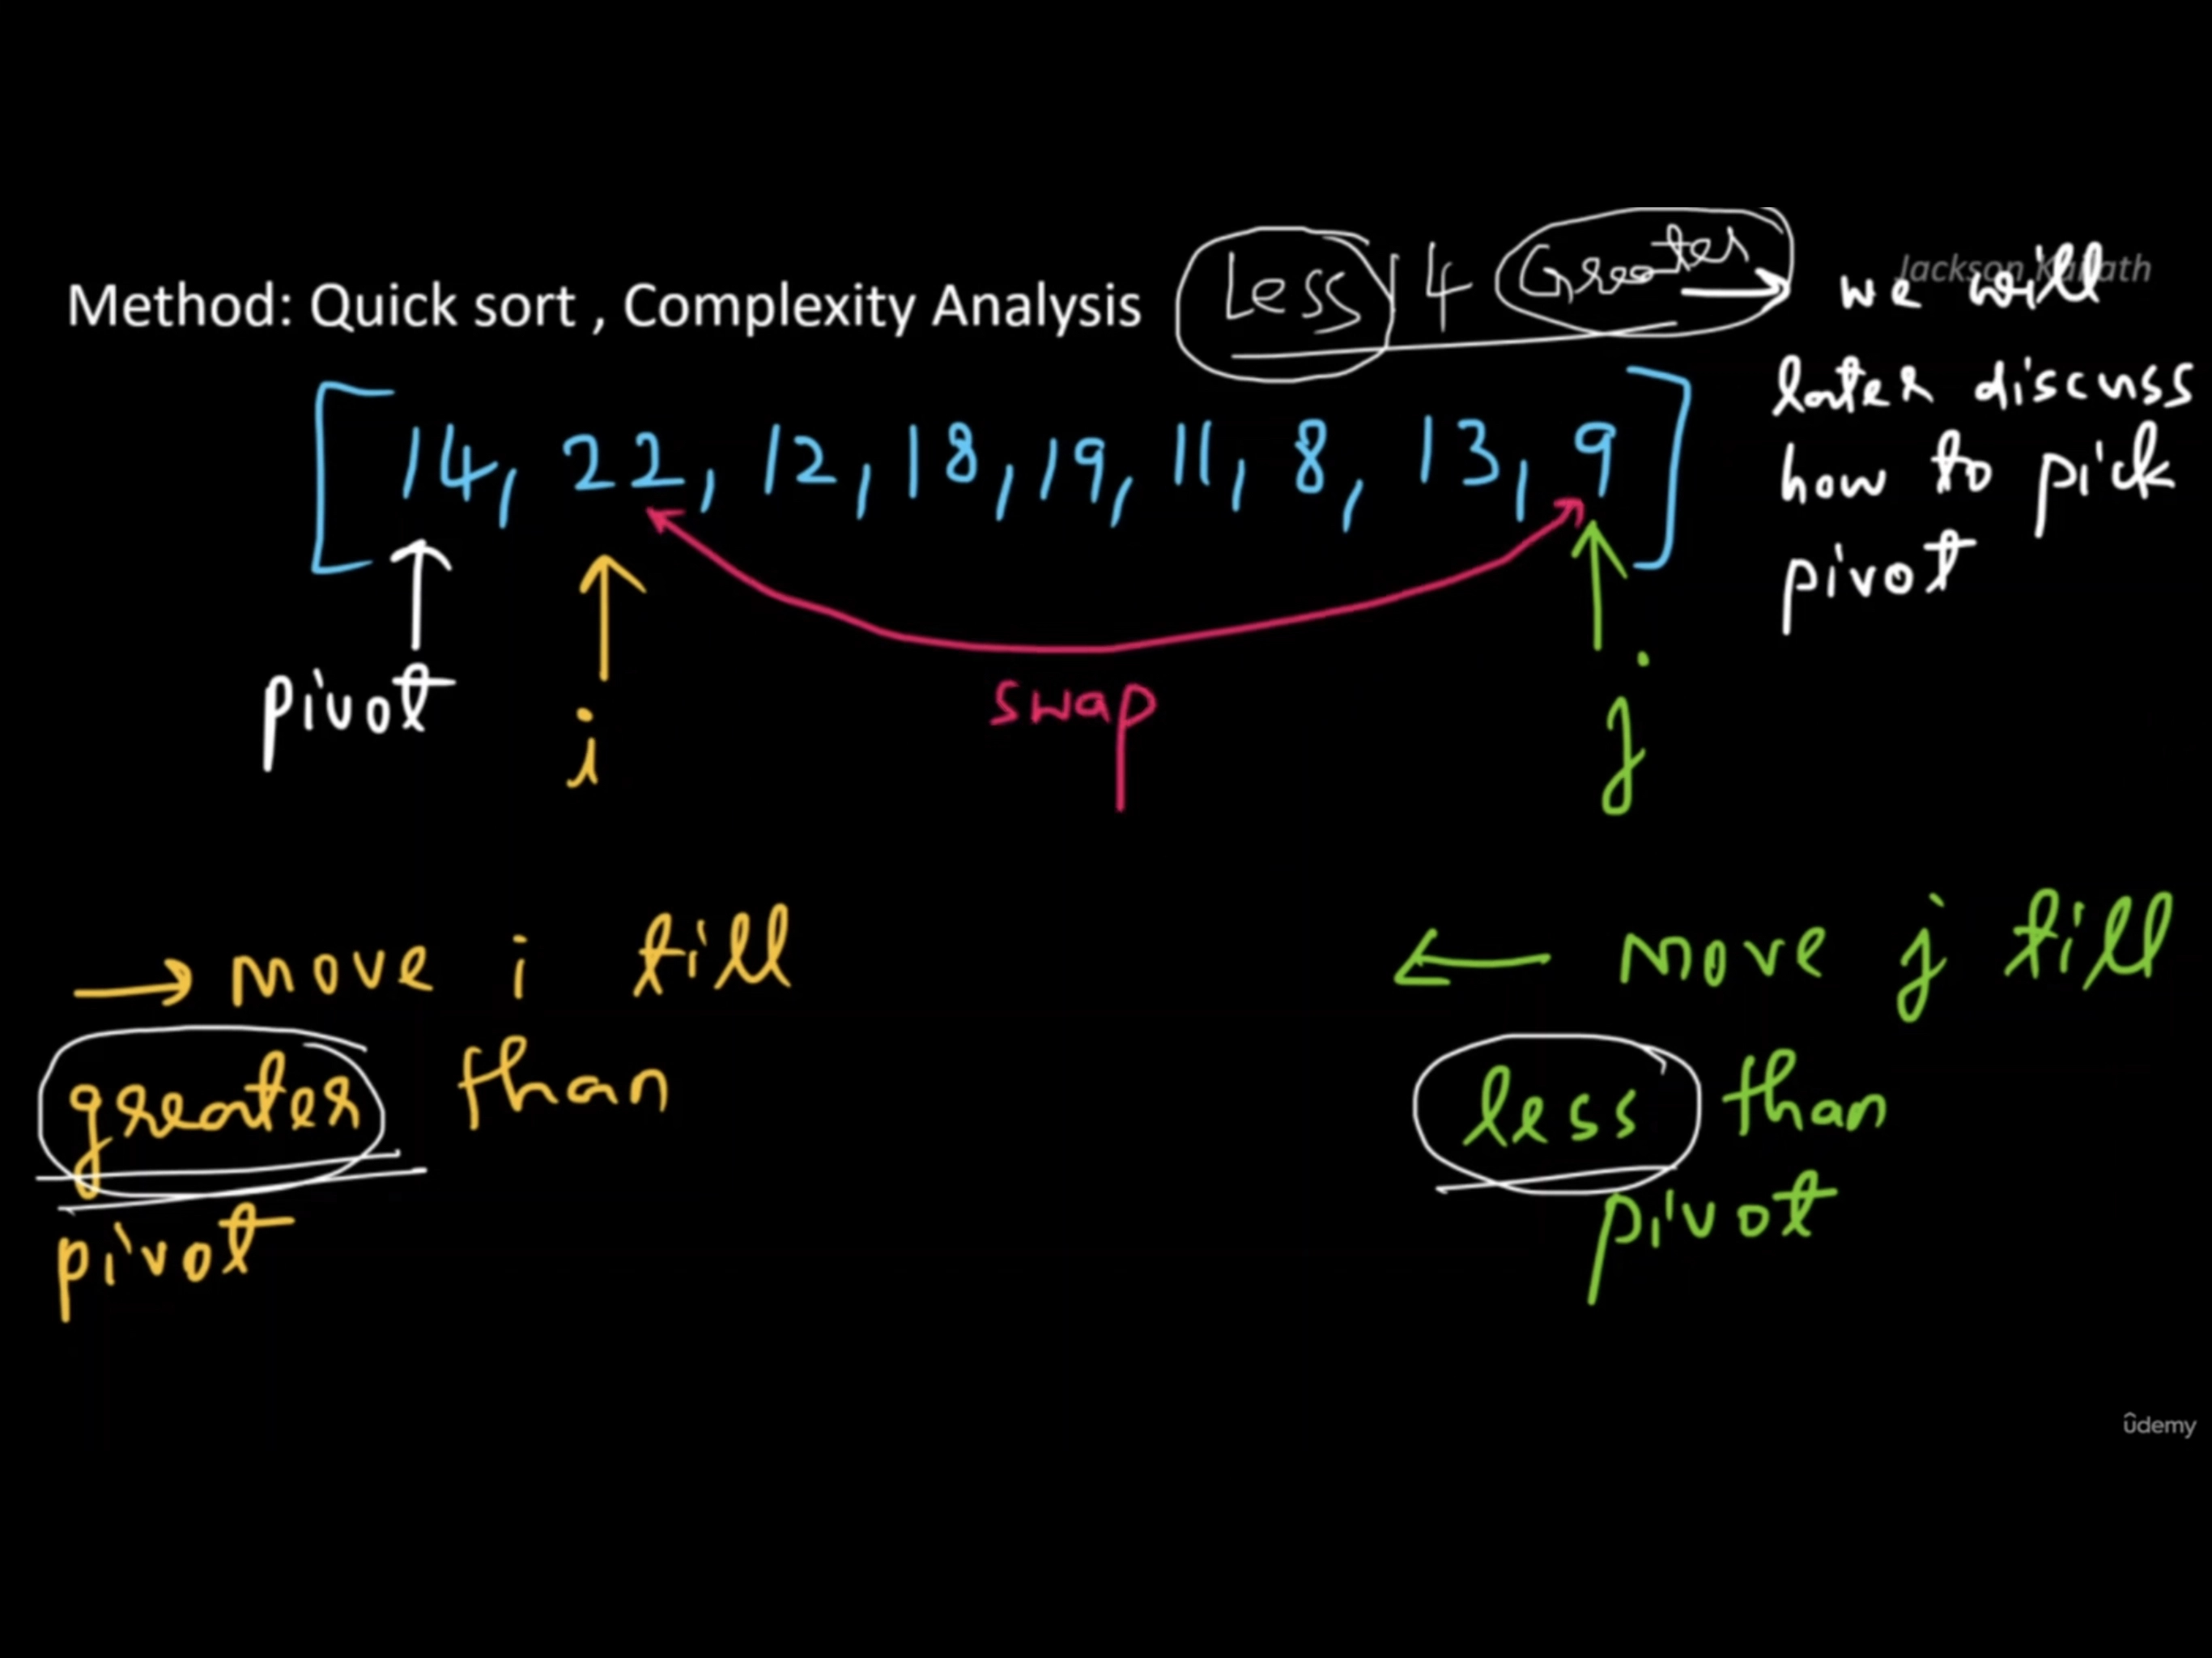 Method: Quick sort , Complexity Analysis
Less 14 Greater
we will
later discuss
how to pick
pivot
[14, 22, 12, 18, 19, 11, 8, 13, 9]
pivot
i
swap
j
move i till
greater than
pivot
move j till
less than
pivot
udemy